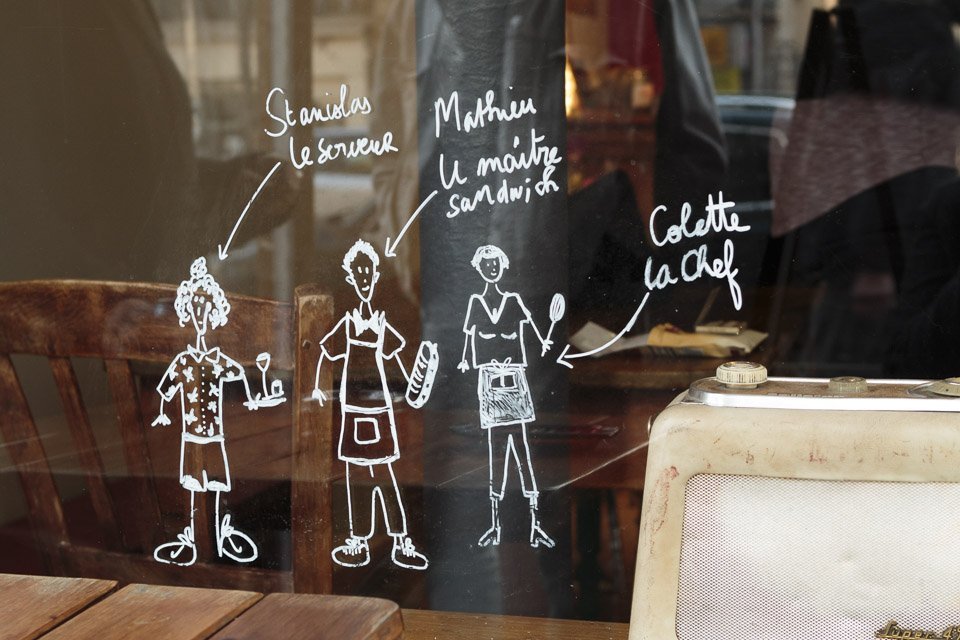 Stanislas
le serveur
Mathieu
le maître
sandwich
Colette
la chef
Super